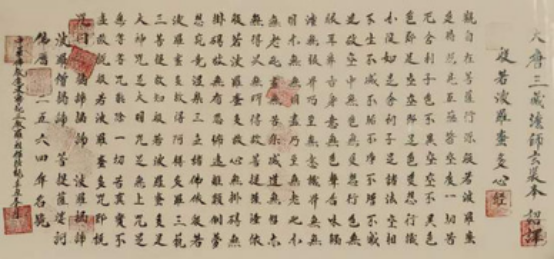 大唐三藏法師玄奘奉 詔譯
般若波羅蜜多心經
觀自在菩薩行深般若波羅蜜
多時照見五蘊皆空度一切苦
厄舍利子色不異空空不異色
色即是空空即是色受想行識
亦復如是舍利子是諸法空相
不生不滅不垢不淨不增不減
是故空中無色無受想行識無
眼耳鼻舌身意無色聲香味觸
法無眼界乃至無意識界無無
明亦無無明盡乃至無老死亦
無老死盡無苦集滅道無智亦
無得以無所得故菩提薩埵依
般若波羅蜜多故心無掛礙無
掛礙故無有恐怖遠離顛倒夢
想究竟涅槃三世諸佛依般若
波羅蜜多故得阿耨多羅三藐
三菩提故知般若波羅蜜多是
大神咒是大明咒是無上咒是
無等等咒能除一切苦真實不
虛故說般若波羅蜜多咒即說
咒曰揭諦揭諦 波羅揭諦
波羅僧揭諦 菩提薩婆訶
佛曆二五六四年